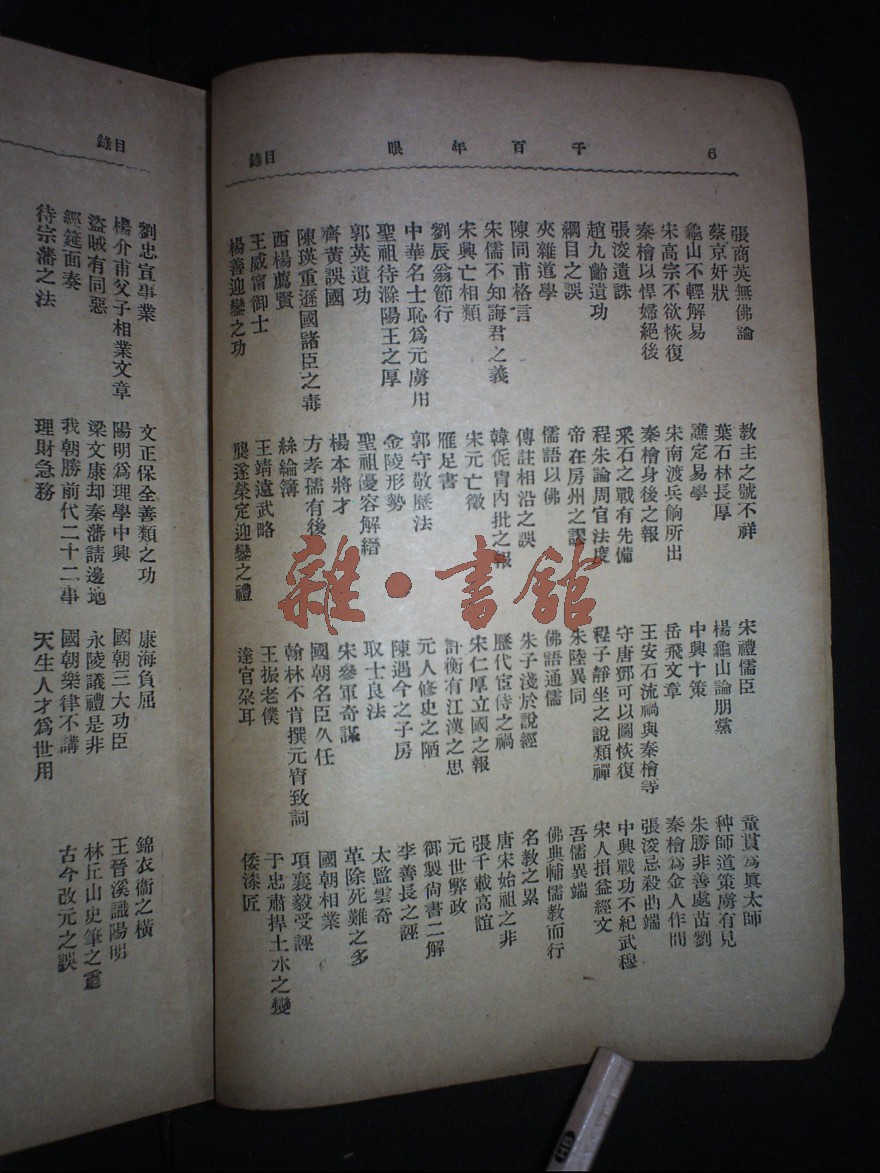 6
千百年眼
目錄
張商英無佛論 教主之號不祥 宋禮儒臣 童貫爲眞太師
蔡京奸狀 葉石林長厚 楊龜山論朋黨 种師道策虜有見
龜山不輕解易 譙定易學 中興十策 朱勝非善處苗劉
宋高宗不欲恢復 宋南渡兵餉所出 岳飛文章 秦檜爲金人作間
秦檜以悍婦絕後 秦檜身後之報 王安石流禍與秦檜等 張浚忌殺曲端
張浚遺誅 釆石之戰有先備 守唐鄧可以圖恢復 中興戰功不紀武穆
趙九齡遺功 程朱論周官法度 程子靜坐之說類禪 宋人損益經文
綱目之誤 帝在房州之謬 朱陸異同 吾儒異端
夾雜道學 儒語以佛 佛語通儒 佛典輔儒教而行
陳同甫格言 傳註相沿之誤 朱子淺於說經 名教之累
宋儒不知誨君之義 韓侂冑內批之報 歷代宦侍之禍 唐宋始祖之非
宋興亡相類 宋元亡徵 宋仁厚立國之報 張千載高誼
劉辰翁節行 雁足書 計衡有江漢之思 元世弊政
中華名士恥爲元虜用 郭守敬歷法 元人修史之陋 御製尚書二解
聖祖待滁陽王之厚 金陵形勢 陳遇今之子房 李善長之誣
郭英遺功 聖祖優容解縉 取士良法 太監雲奇
齊黃誤國 楊本將才 宋參軍奇謀 革除死難之多
陳瑛重遜國諸臣之毒 方孝孺有後 國朝名臣久任 國朝相業
西楊薦賢 絲綸簿 翰林不肯撰元宵致詞 項襄毅受誣
王威甯御士 王靖遠武略 王振老僕 于忠肅捍土木之變
楊善迎鑾之功 龔遂榮定迎鑾之禮 達官朶耳 倭漆匠
目錄
劉忠宣事業 文正保全善類之功 康海負屈 錦衣衞之橫
楊介甫父子相業文章 陽明爲理學中興 國朝三大功臣 王晉溪識陽明
盜賊有同惡 梁文康却秦藩請邊地 永陵議禮是非 林丘山史筆之重
經筵面奏 我朝勝前代二十二事 國朝樂律不講 古今改元之誤
待宗藩之法 理財急務 天生人才爲世用
雜·書館
HB